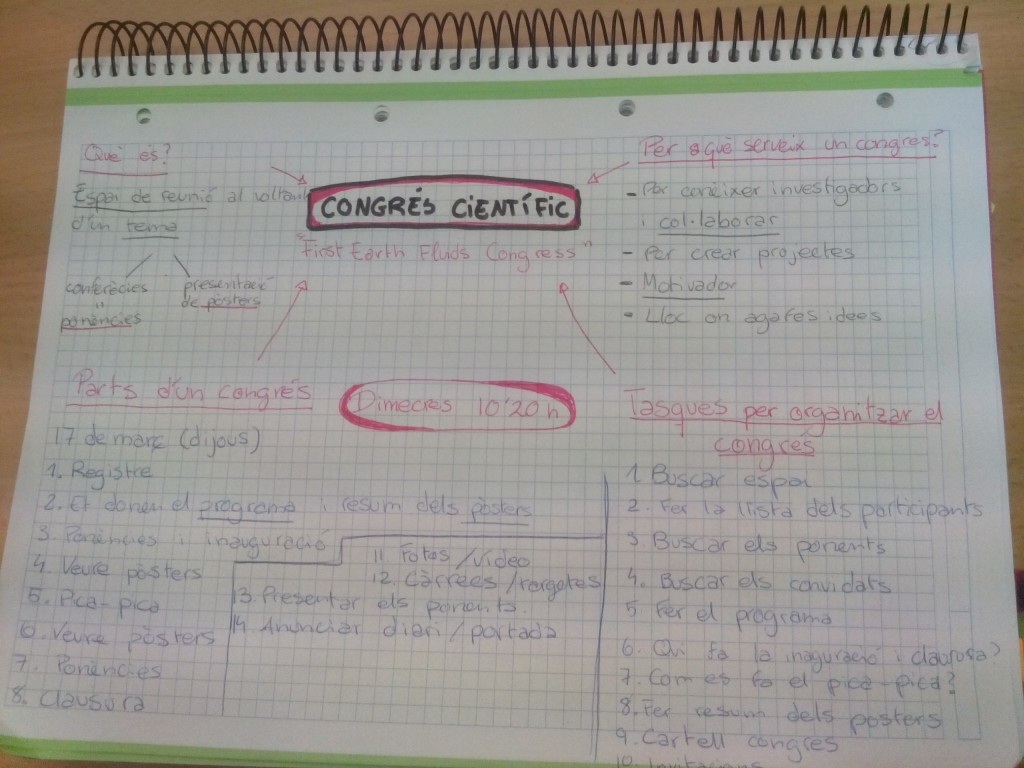 Què és?
Espai de reunió al voltant
d'un tema
conferècies
"
ponències
presentació
de pòsters
CONGRÉS CIENTÍFIC
"First Earth Fluids Congress"
Per a què serveix un congres?
- Per conèixer investigadors
i col·laborar
- Per crear projectes
- Motivador
- Lloc on agafes idees
Parts d'un congrés
17 de març (dijous)
1. Registre
2. Et donen el programa i resum dels pòsters
3. Ponències i inauguració
4. Veure pòsters
5. Pica-pica
6. Veure pòsters
7. Ponències
8. Clausura
Dimecres 10'20 h
Tasques per organitzar el
congrés
1 Buscar espai
2. Fer la llista dels participants
3. Buscar els ponents
4. Buscar els convidats
5 Fer el programa
6. Qui fa la inaguració i clausura?
7. Com es fa el pica-pica?
8. Fer resum dels posters
9. Cartell congres
10. Invitacions
11 Fotos /vídeo
12. Càrrecs /targetes
13. Presentar els ponents.
14. Anunciar diari / portada